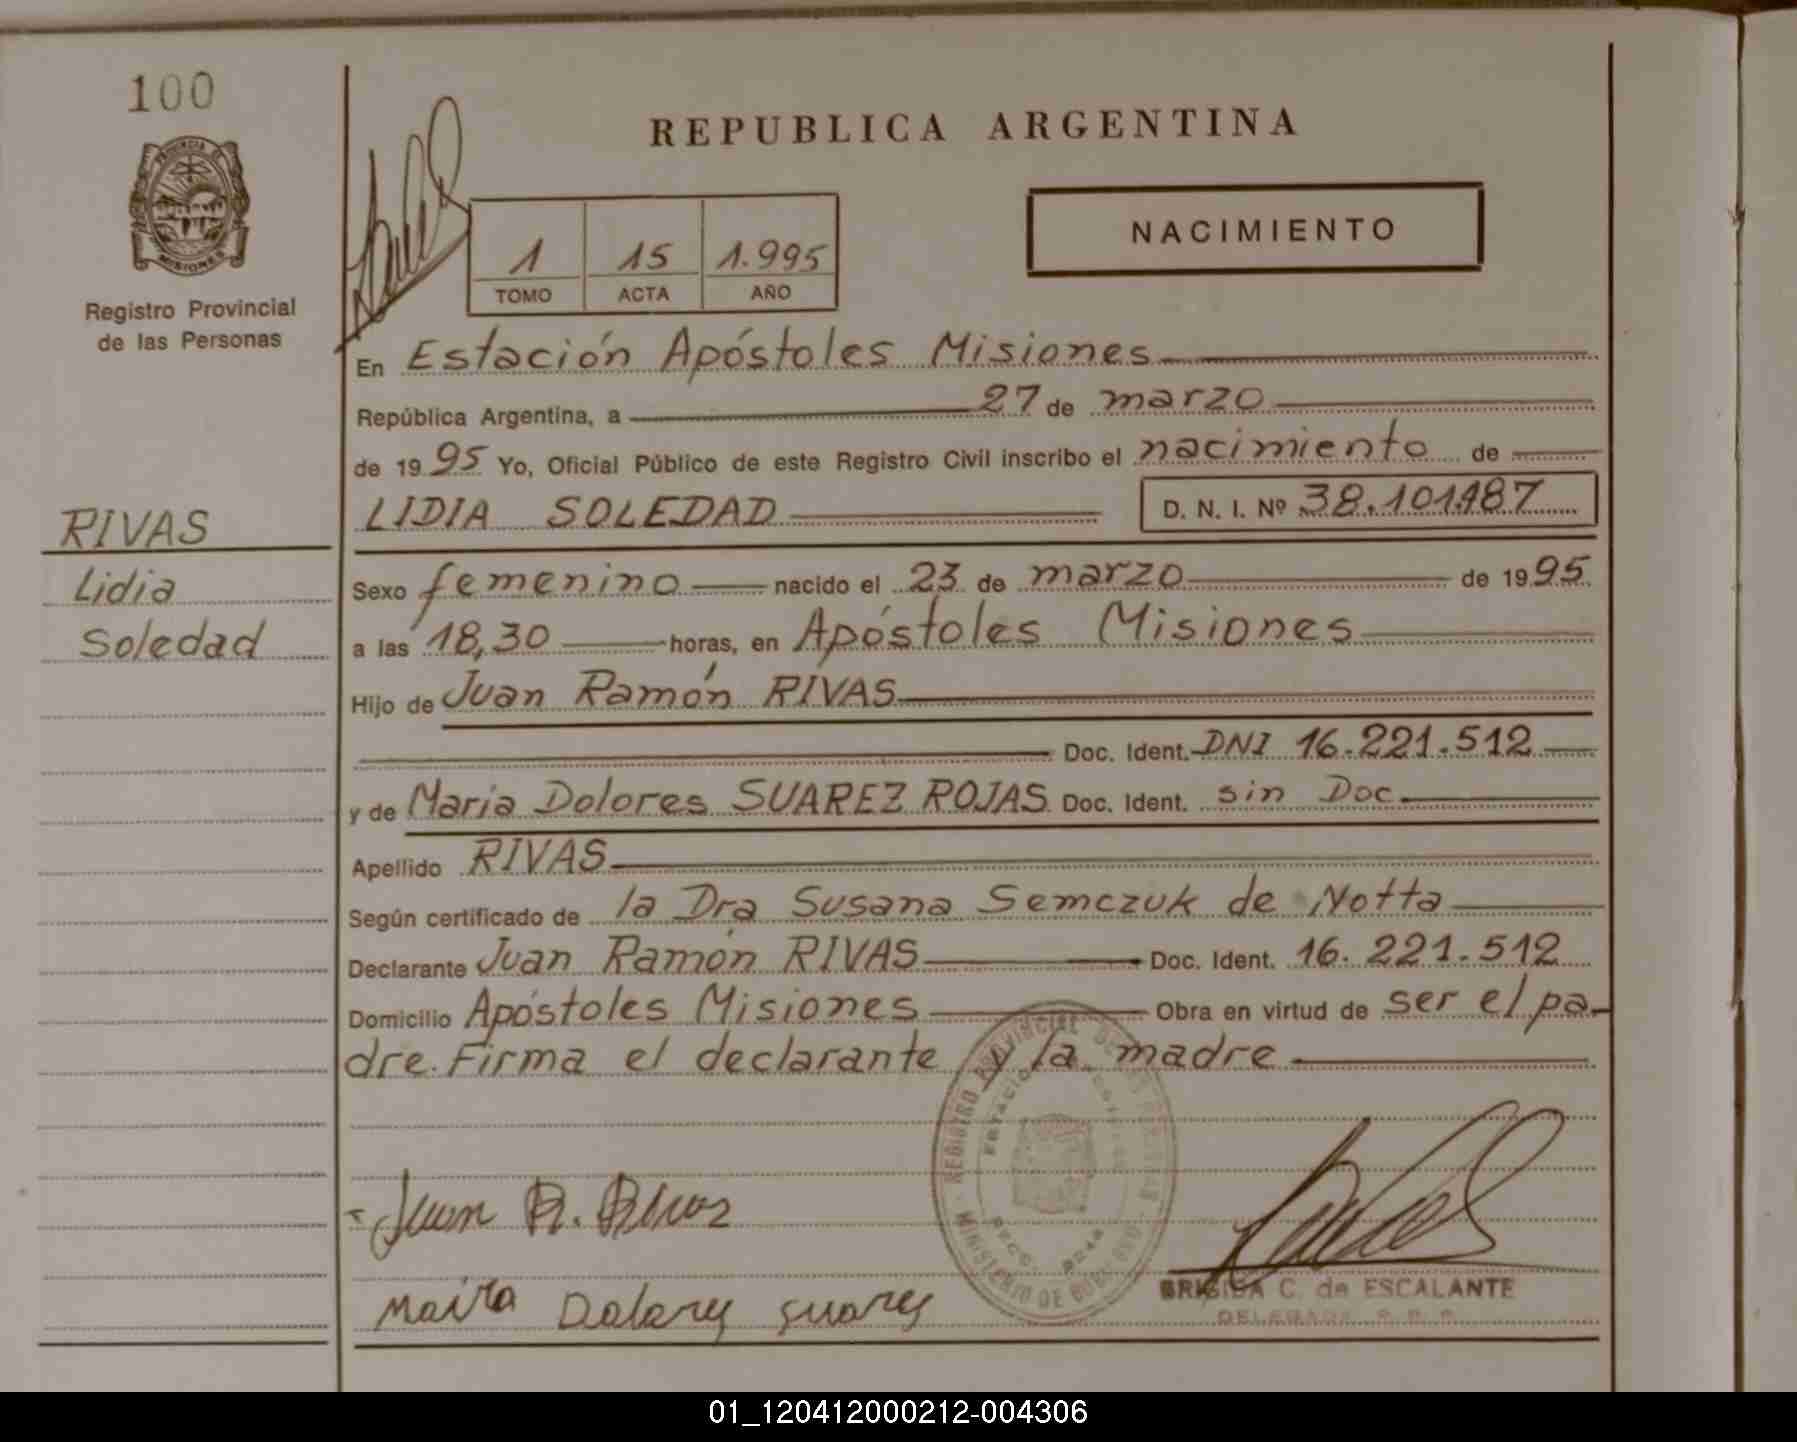 100
PROVINCIA DE
MISIONES
Registro Provincial
de las Personas
RIVAS
Lidia
Soledad
REPUBLICA ARGENTINA
1 15 1.995
TOMO ACTA AÑO
NACIMIENTO
En Estación Apóstoles Misiones
República Argentina, a 27 de marzo
de 1995 Yo, Oficial Público de este Registro Civil inscribo el nacimiento de
LIDIA SOLEDAD D. N. I. Nº 38.101.187
Sexo femenino nacido el 23 de marzo de 1995
a las 18,30 horas, en Apóstoles Misiones
Hijo de Juan Ramón RIVAS
Doc. Ident. DNI 16.221.512
y de Maria Dolores SUAREZ ROJAS Doc. Ident. sin Doc
Apellido RIVAS
Según certificado de la Dra Susana Semczuk de Notta
Declarante Juan Ramón RIVAS Doc. Ident. 16.221.512
Domicilio Apóstoles Misiones Obra en virtud de ser el pa-
dre. Firma el declarante y la madre
REGISTRO PROVINCIAL DE LAS PERSONAS
MINISTERIO DE GOBIERNO
Juan R. Rivas
Dolores
BRIGIDA C. de ESCALANTE
DELEGADA R. P. P.
01_120412000212-004306